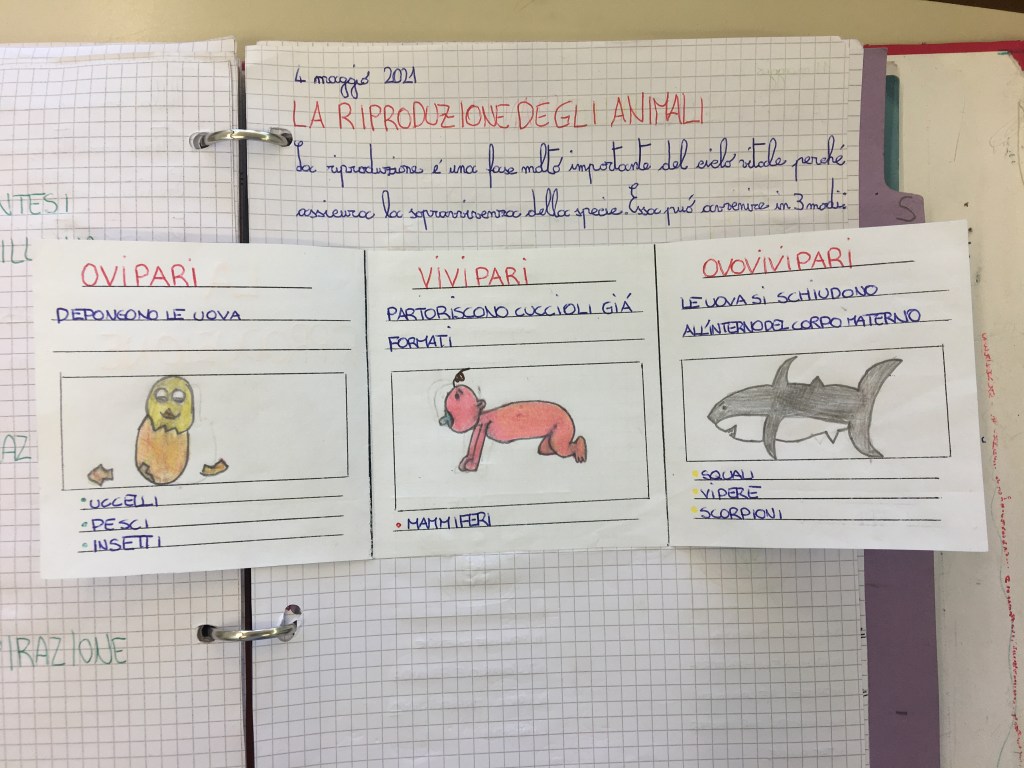 4 maggio 2021
LA RIPRODUZIONE DEGLI ANIMALI
La riproduzione é una fase molto importante del ciclo vitale perché
assicura la sopravvivenza della specie. Essa puó avvenire in 3 modi:
OVIPARI
DEPONGONO LE UOVA
UCCELLI
PESCI
INSETTI
VIVIPARI
PARTORISCONO CUCCIOLI GIÁ
FORMATI
MAMMIFERI
OVOVIVIPARI
LE UOVA SI SCHIUDONO
ALL'INTERNO DEL CORPO MATERNO
SQUALI
VIPERE
SCORPIONI
S
NTESI
AZ
IRAZIONE